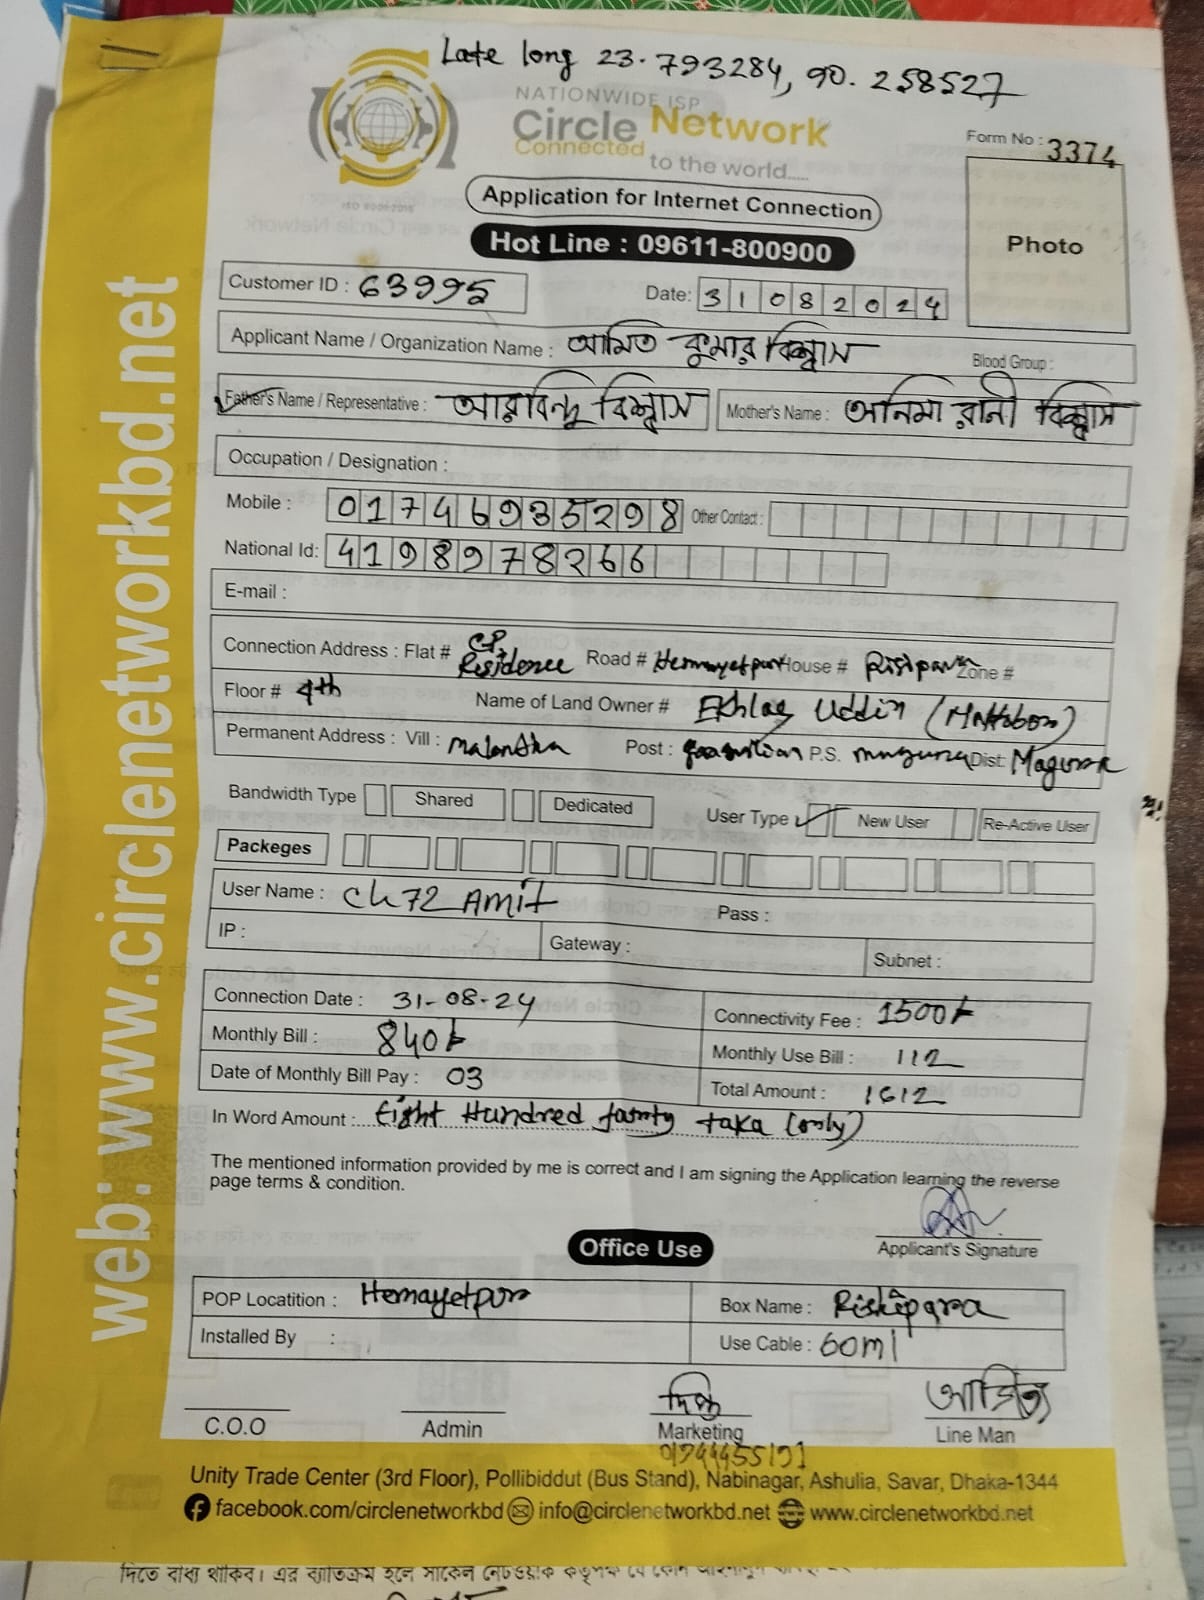 Late long 23.793284, 90.258527
NATIONWIDE ISP
Circle Network
Connected to the world.....
ISO 9001:2015
Form No : 3374
Application for Internet Connection
Photo
Hot Line : 09611-800900
Customer ID : 63995
Date: 31082024
Applicant Name / Organization Name : আমিত কুমার বিশ্বাস Blood Group :
Father's Name / Representative : আরবিন্দু বিশ্বাস Mother's Name : অনিমা রানী বিশ্বাস
Occupation / Designation :
Mobile : 01746935298 Other Contact :
National Id: 4198978266
E-mail :
Connection Address : Flat # CP, Residence Road # Hemayetpur House # Risipara Zone #
Floor # 4th Name of Land Owner # Ekhlas Uddin
Permanent Address : Vill : Post : P.S. Magura Dist: Magura
Bandwidth Type Shared Dedicated User Type ✓ New User Re-Active User
Packeges
User Name : Ch72 Amit Pass :
IP : Gateway : Subnet :
Connection Date : 31-08-24 Connectivity Fee : 1500/-
Monthly Bill : 840/- Monthly Use Bill : 112
Date of Monthly Bill Pay : 03 Total Amount : 1612
In Word Amount : Eight Hundred fourty taka (only)
The mentioned information provided by me is correct and I am signing the Application learning the reverse
page terms & condition.
Applicant's Signature
Office Use
POP Locatition : Hemayetpur Box Name : Rishipara
Installed By : Use Cable : 60ml
C.O.O Admin Marketing Line Man
Unity Trade Center (3rd Floor), Pollibiddut (Bus Stand), Nabinagar, Ashulia, Savar, Dhaka-1344
facebook.com/circlenetworkbd info@circlenetworkbd.net www.circlenetworkbd.net
web: www.circlenetworkbd.net